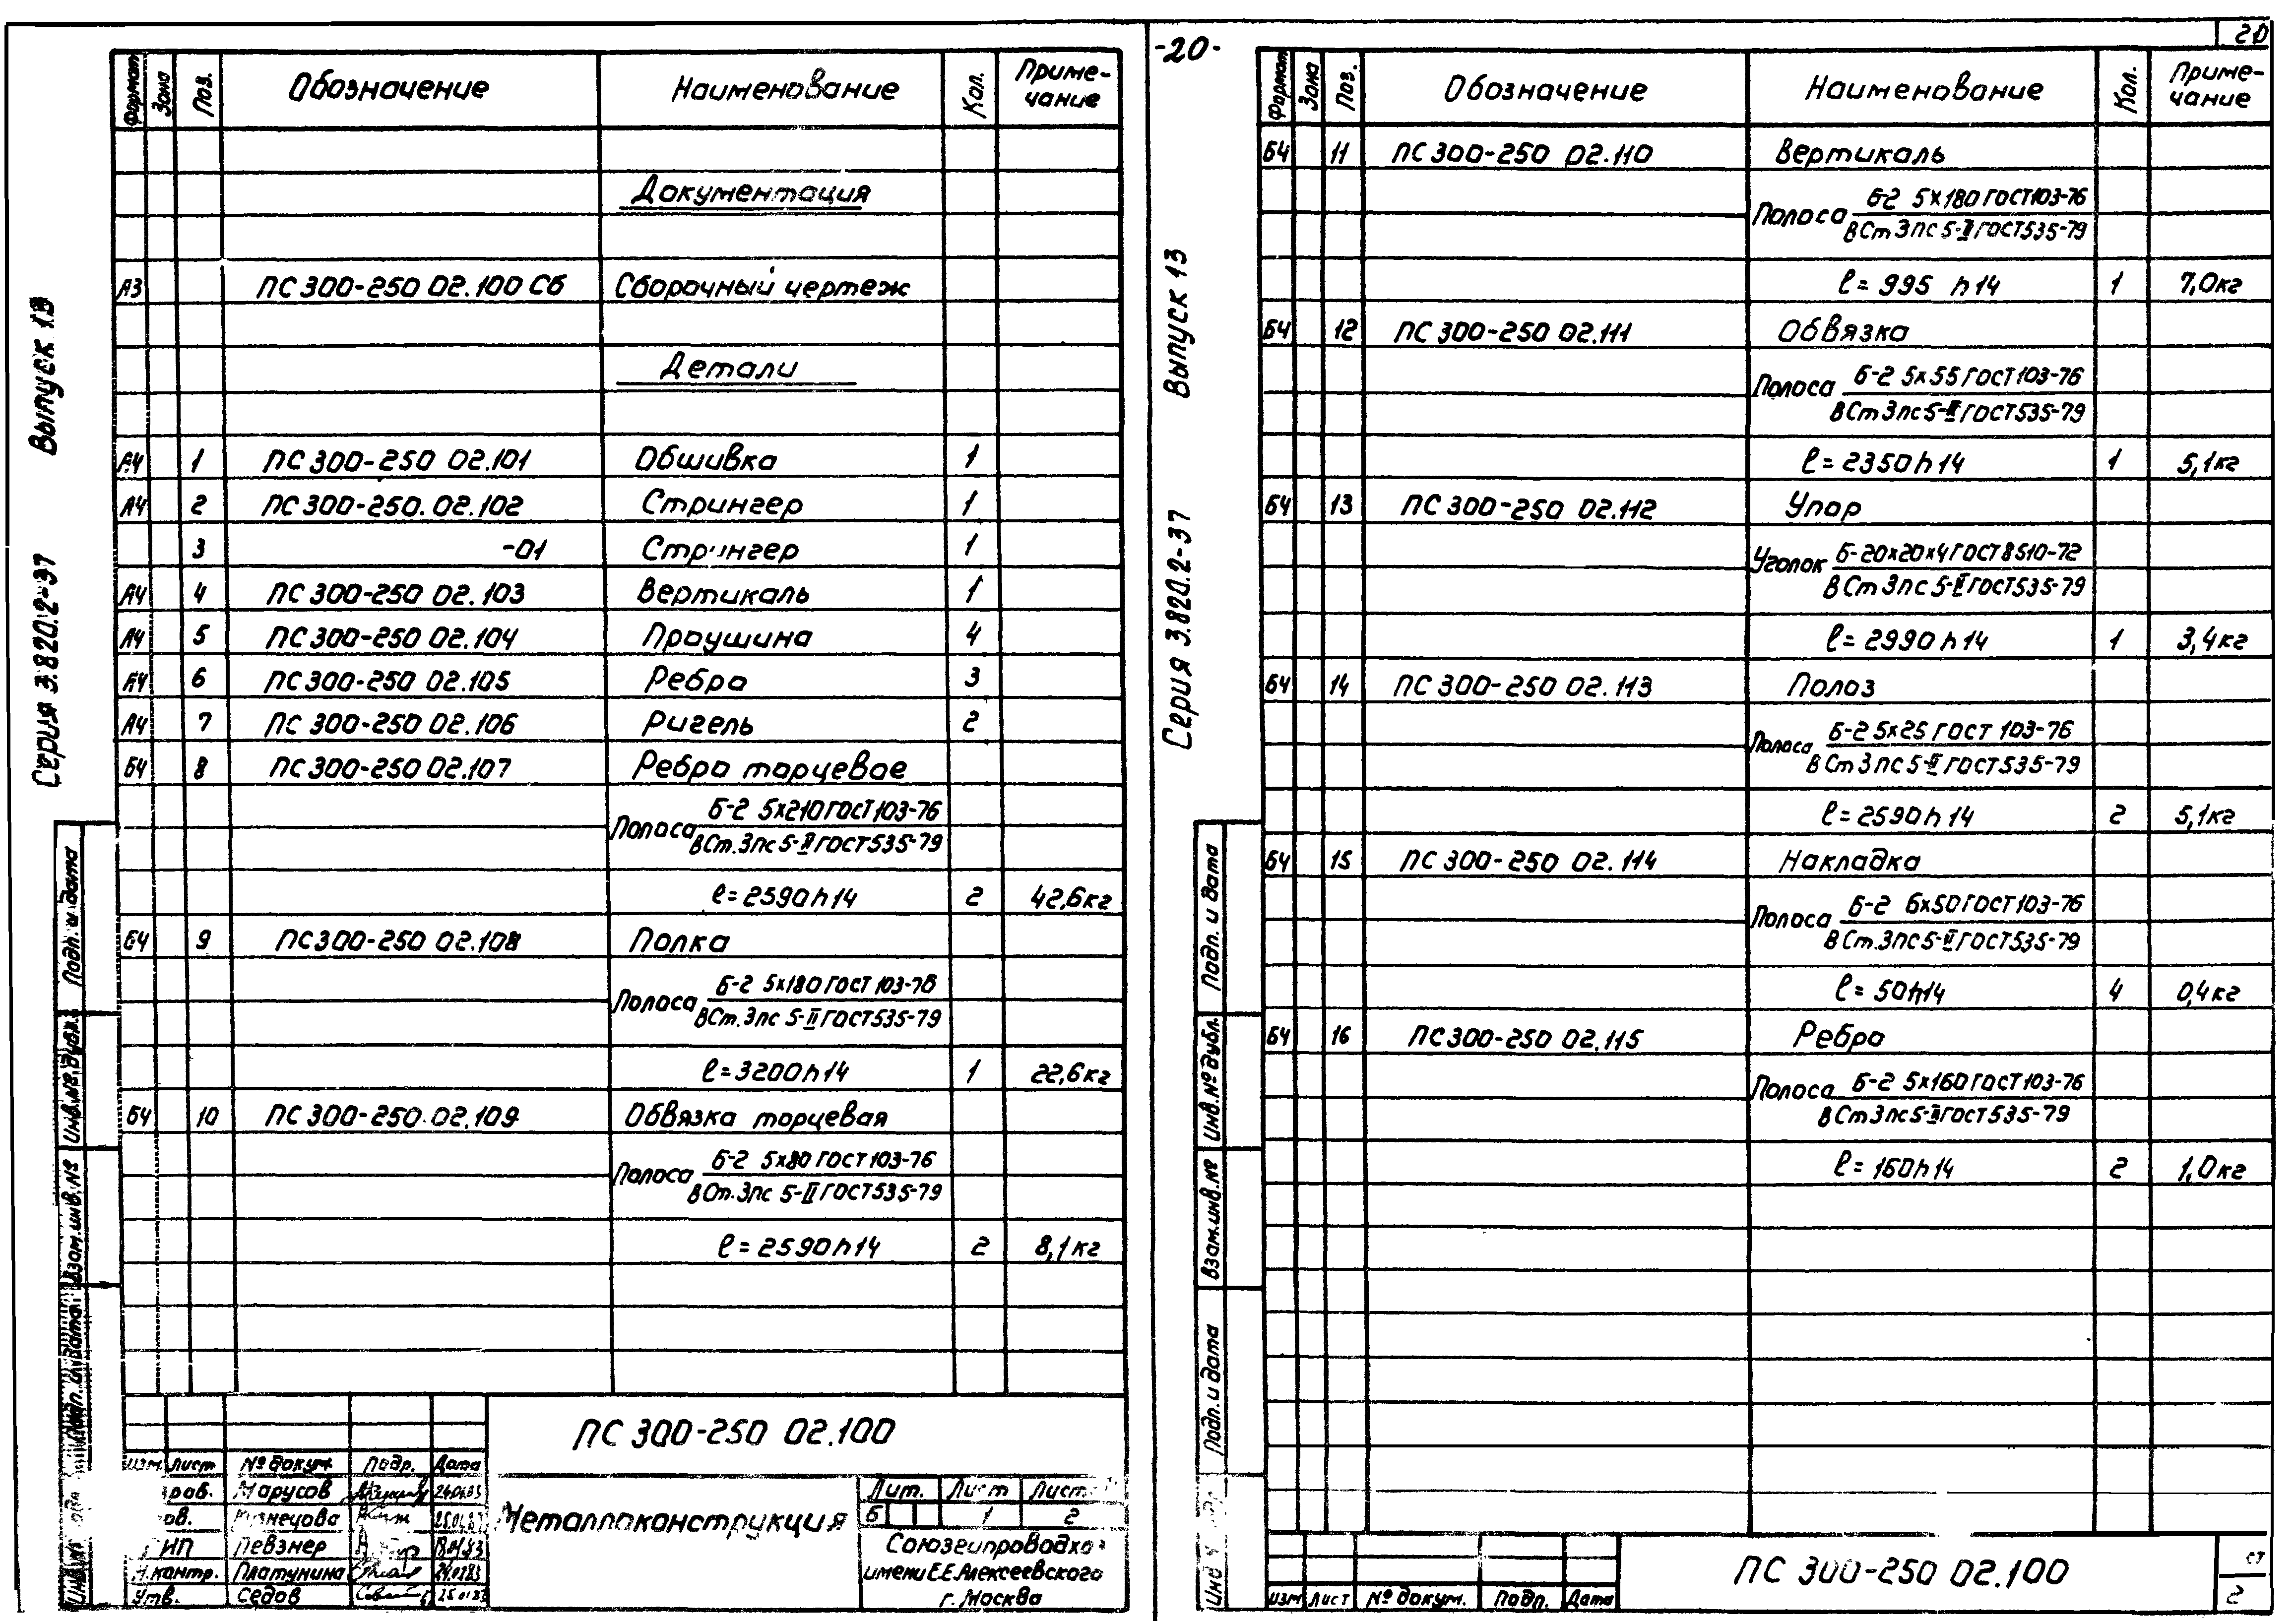 -20-
20
Формат Зона Поз. Обозначение Наименование Кол. Приме-
чание
Документация
А3 ПС 300-250 02.100 СБ Сборочный чертеж
Детали
А4 1 ПС 300-250 02.101 Обшивка 1
А4 2 ПС 300-250. 02.102 Стрингер 1
3 -01 Стрингер 1
А4 4 ПС 300-250 02.103 Вертикаль 1
А4 5 ПС 300-250 02.104 Проушина 4
А4 6 ПС 300-250 02.105 Ребро 3
А4 7 ПС 300-250 02.106 Ригель 2
БЧ 8 ПС 300-250 02.107 Ребро торцевое
Полоса Б-2 5х210 ГОСТ 103-76
ВСт.3пс 5-II ГОСТ 535-79
ℓ=2590h14 2 42,6кг
БЧ 9 ПС 300-250 02.108 Полка
Полоса Б-2 5х180 ГОСТ 103-76
ВСт.3пс 5-II ГОСТ 535-79
ℓ=3200h14 1 22,6кг
БЧ 10 ПС 300-250 02.109 Обвязка торцевая
Полоса Б-2 5х80 ГОСТ 103-76
ВСт.3пс 5-II ГОСТ 535-79
ℓ=2590h14 2 8,1кг
Серия 3.820.2-37 Выпуск 13
Подп. и дата
Инв.№ дубл.
Взам.инв.№
Подп. и дата
ПС 300-250 02.100
Изм. Лист № докум. Подп. Дата
Марусов 24.01.83
Кузнецова
ГИП Певзнер
Н.контр. Платунина 24.01.83
Утв. Седов 25.01.83
Металлоконструкция
Лит. Лист Лист
Б 1 2
Союзгипроводхоз
имени Е.Е.Алексеевского
г. Москва
Формат Зона Поз. Обозначение Наименование Кол. Приме-
чание
БЧ 11 ПС 300-250 02.110 Вертикаль
Полоса Б-2 5х180 ГОСТ 103-76
ВСт 3пс 5-II ГОСТ 535-79
ℓ=995 h14 1 7,0кг
БЧ 12 ПС 300-250 02.111 Обвязка
Полоса Б-2 5х55 ГОСТ 103-76
ВСт 3пс 5-II ГОСТ 535-79
ℓ=2350h14 1 5,1кг
БЧ 13 ПС 300-250 02.112 Упор
Уголок Б-20х20х4 ГОСТ 8510-72
ВСт 3пс 5-II ГОСТ 535-79
ℓ=2990h14 1 3,4кг
БЧ 14 ПС 300-250 02.113 Полоз
Полоса Б-2 5х25 ГОСТ 103-76
ВСт 3пс 5-II ГОСТ 535-79
ℓ=2590h14 2 5,1кг
БЧ 15 ПС 300-250 02.114 Накладка
Полоса Б-2 6х50 ГОСТ 103-76
ВСт.3пс 5-II ГОСТ 535-79
ℓ=50h14 4 0,4кг
БЧ 16 ПС 300-250 02.115 Ребро
Полоса Б-2 5х160 ГОСТ 103-76
ВСт 3пс 5-II ГОСТ 535-79
ℓ=160h14 2 1,0кг
Серия 3.820.2-37 Выпуск 13
Подп. и дата
Инв.№ дубл.
Взам.инв.№
Подп. и дата
Изм Лист № докум. Подп. Дата
ПС 300-250 02.100
2